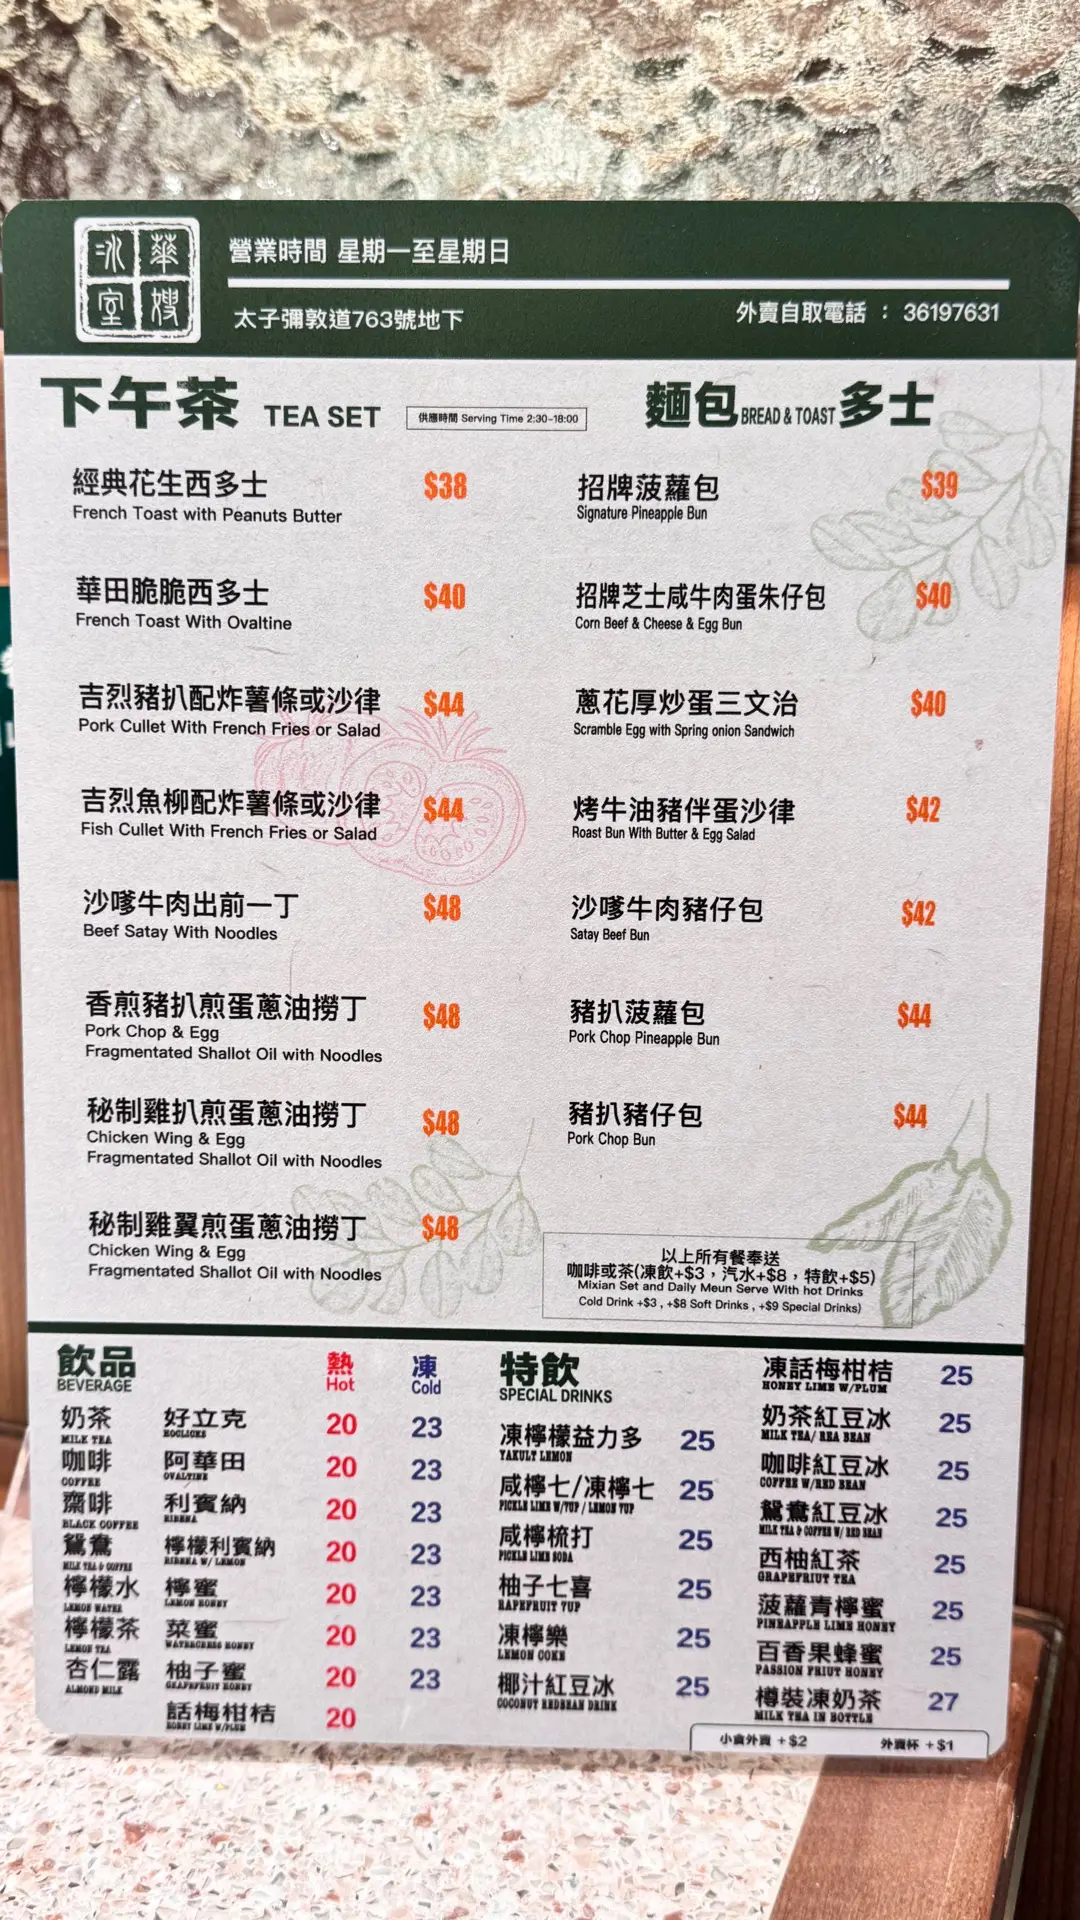 冰 華
室 嫂
營業時間 星期一至星期日
太子彌敦道763號地下
外賣自取電話 : 36197631
下午茶 TEA SET
供應時間 Serving Time 2:30-18:00
經典花生西多士 $38
French Toast with Peanuts Butter
華田脆脆西多士 $40
French Toast With Ovaltine
吉烈豬扒配炸薯條或沙律 $44
Pork Cullet With French Fries or Salad
吉烈魚柳配炸薯條或沙律 $44
Fish Cullet With French Fries or Salad
沙嗲牛肉出前一丁 $48
Beef Satay With Noodles
香煎豬扒煎蛋蔥油撈丁 $48
Pork Chop & Egg
Fragmentated Shallot Oil with Noodles
秘制雞扒煎蛋蔥油撈丁 $48
Chicken Wing & Egg
Fragmentated Shallot Oil with Noodles
秘制雞翼煎蛋蔥油撈丁 $48
Chicken Wing & Egg
Fragmentated Shallot Oil with Noodles
麵包 BREAD & TOAST 多士
招牌菠蘿包 $39
Signature Pineapple Bun
招牌芝士咸牛肉蛋朱仔包 $40
Corn Beef & Cheese & Egg Bun
蔥花厚炒蛋三文治 $40
Scramble Egg with Spring onion Sandwich
烤牛油豬伴蛋沙律 $42
Roast Bun With Butter & Egg Salad
沙嗲牛肉豬仔包 $42
Satay Beef Bun
豬扒菠蘿包 $44
Pork Chop Pineapple Bun
豬扒豬仔包 $44
Pork Chop Bun
以上所有餐奉送
咖啡或茶(凍飲+$3，汽水+$8，特飲+$5)
Mixian Set and Daily Meun Serve With hot Drinks
Cold Drink +$3 , +$8 Soft Drinks , +$9 Special Drinks)
飲品 熱 凍
BEVERAGE Hot Cold
奶茶 好立克 20 23
MILK TEA HOCLICKS
咖啡 阿華田 20 23
COFFEE OVALTINE
齋啡 利賓納 20 23
BLACK COFFEE RIBENA
鴛鴦 檸檬利賓納 20 23
MILK TEA & COFFEE RIBENA W/ LEMON
檸檬水 檸蜜 20 23
LEMON WATER LEMON HONEY
檸檬茶 菜蜜 20 23
LEMON TEA WATERCRESS HONEY
杏仁露 柚子蜜 20 23
ALMOND MILK GRAPEFRUIT HONEY
話梅柑桔 20
HONEY LIME W/PLUM
特飲
SPECIAL DRINKS
凍檸檬益力多 25
YAKULT LEMON
咸檸七/凍檸七 25
PICKLE LIME W/7UP / LEMON 7UP
咸檸梳打 25
PICKLE LIME SODA
柚子七喜 25
RAPEFRUIT 7UP
凍檸樂 25
LEMON COKE
椰汁紅豆冰 25
COCONUT REDBEAN DRINK
凍話梅柑桔 25
HONEY LIME W/PLUM
奶茶紅豆冰 25
MILK TEA/ REA BEAN
咖啡紅豆冰 25
COFFEE W/RED BEAN
鴛鴦紅豆冰 25
MILK TEA & COFFEE W/ RED BEAN
西柚紅茶 25
GRAPEFRIUT TEA
菠蘿青檸蜜 25
PINEAPPLE LIME HONEY
百香果蜂蜜 25
PASSION FRIUT HONEY
樽裝凍奶茶 27
MILK TEA IN BOTTLE
小食外賣 +$2 外賣杯 +$1